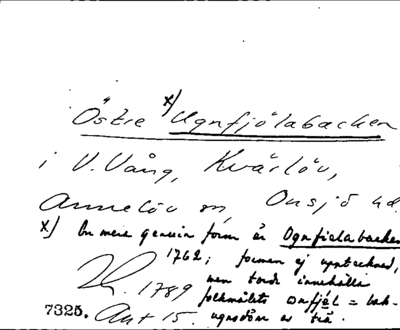 Östre x) Ugnfjölabacken
i V. Vång, Kvärlöv,
Annelöv sn, Onsjö hd.
x) En mera genuin form är Ognfielabacken
1762; formen ej upptecknad,
men torde innehålla
1789 folkmålets onfjel = bak-
7325. Akt 15. ugnsdörr av trä.